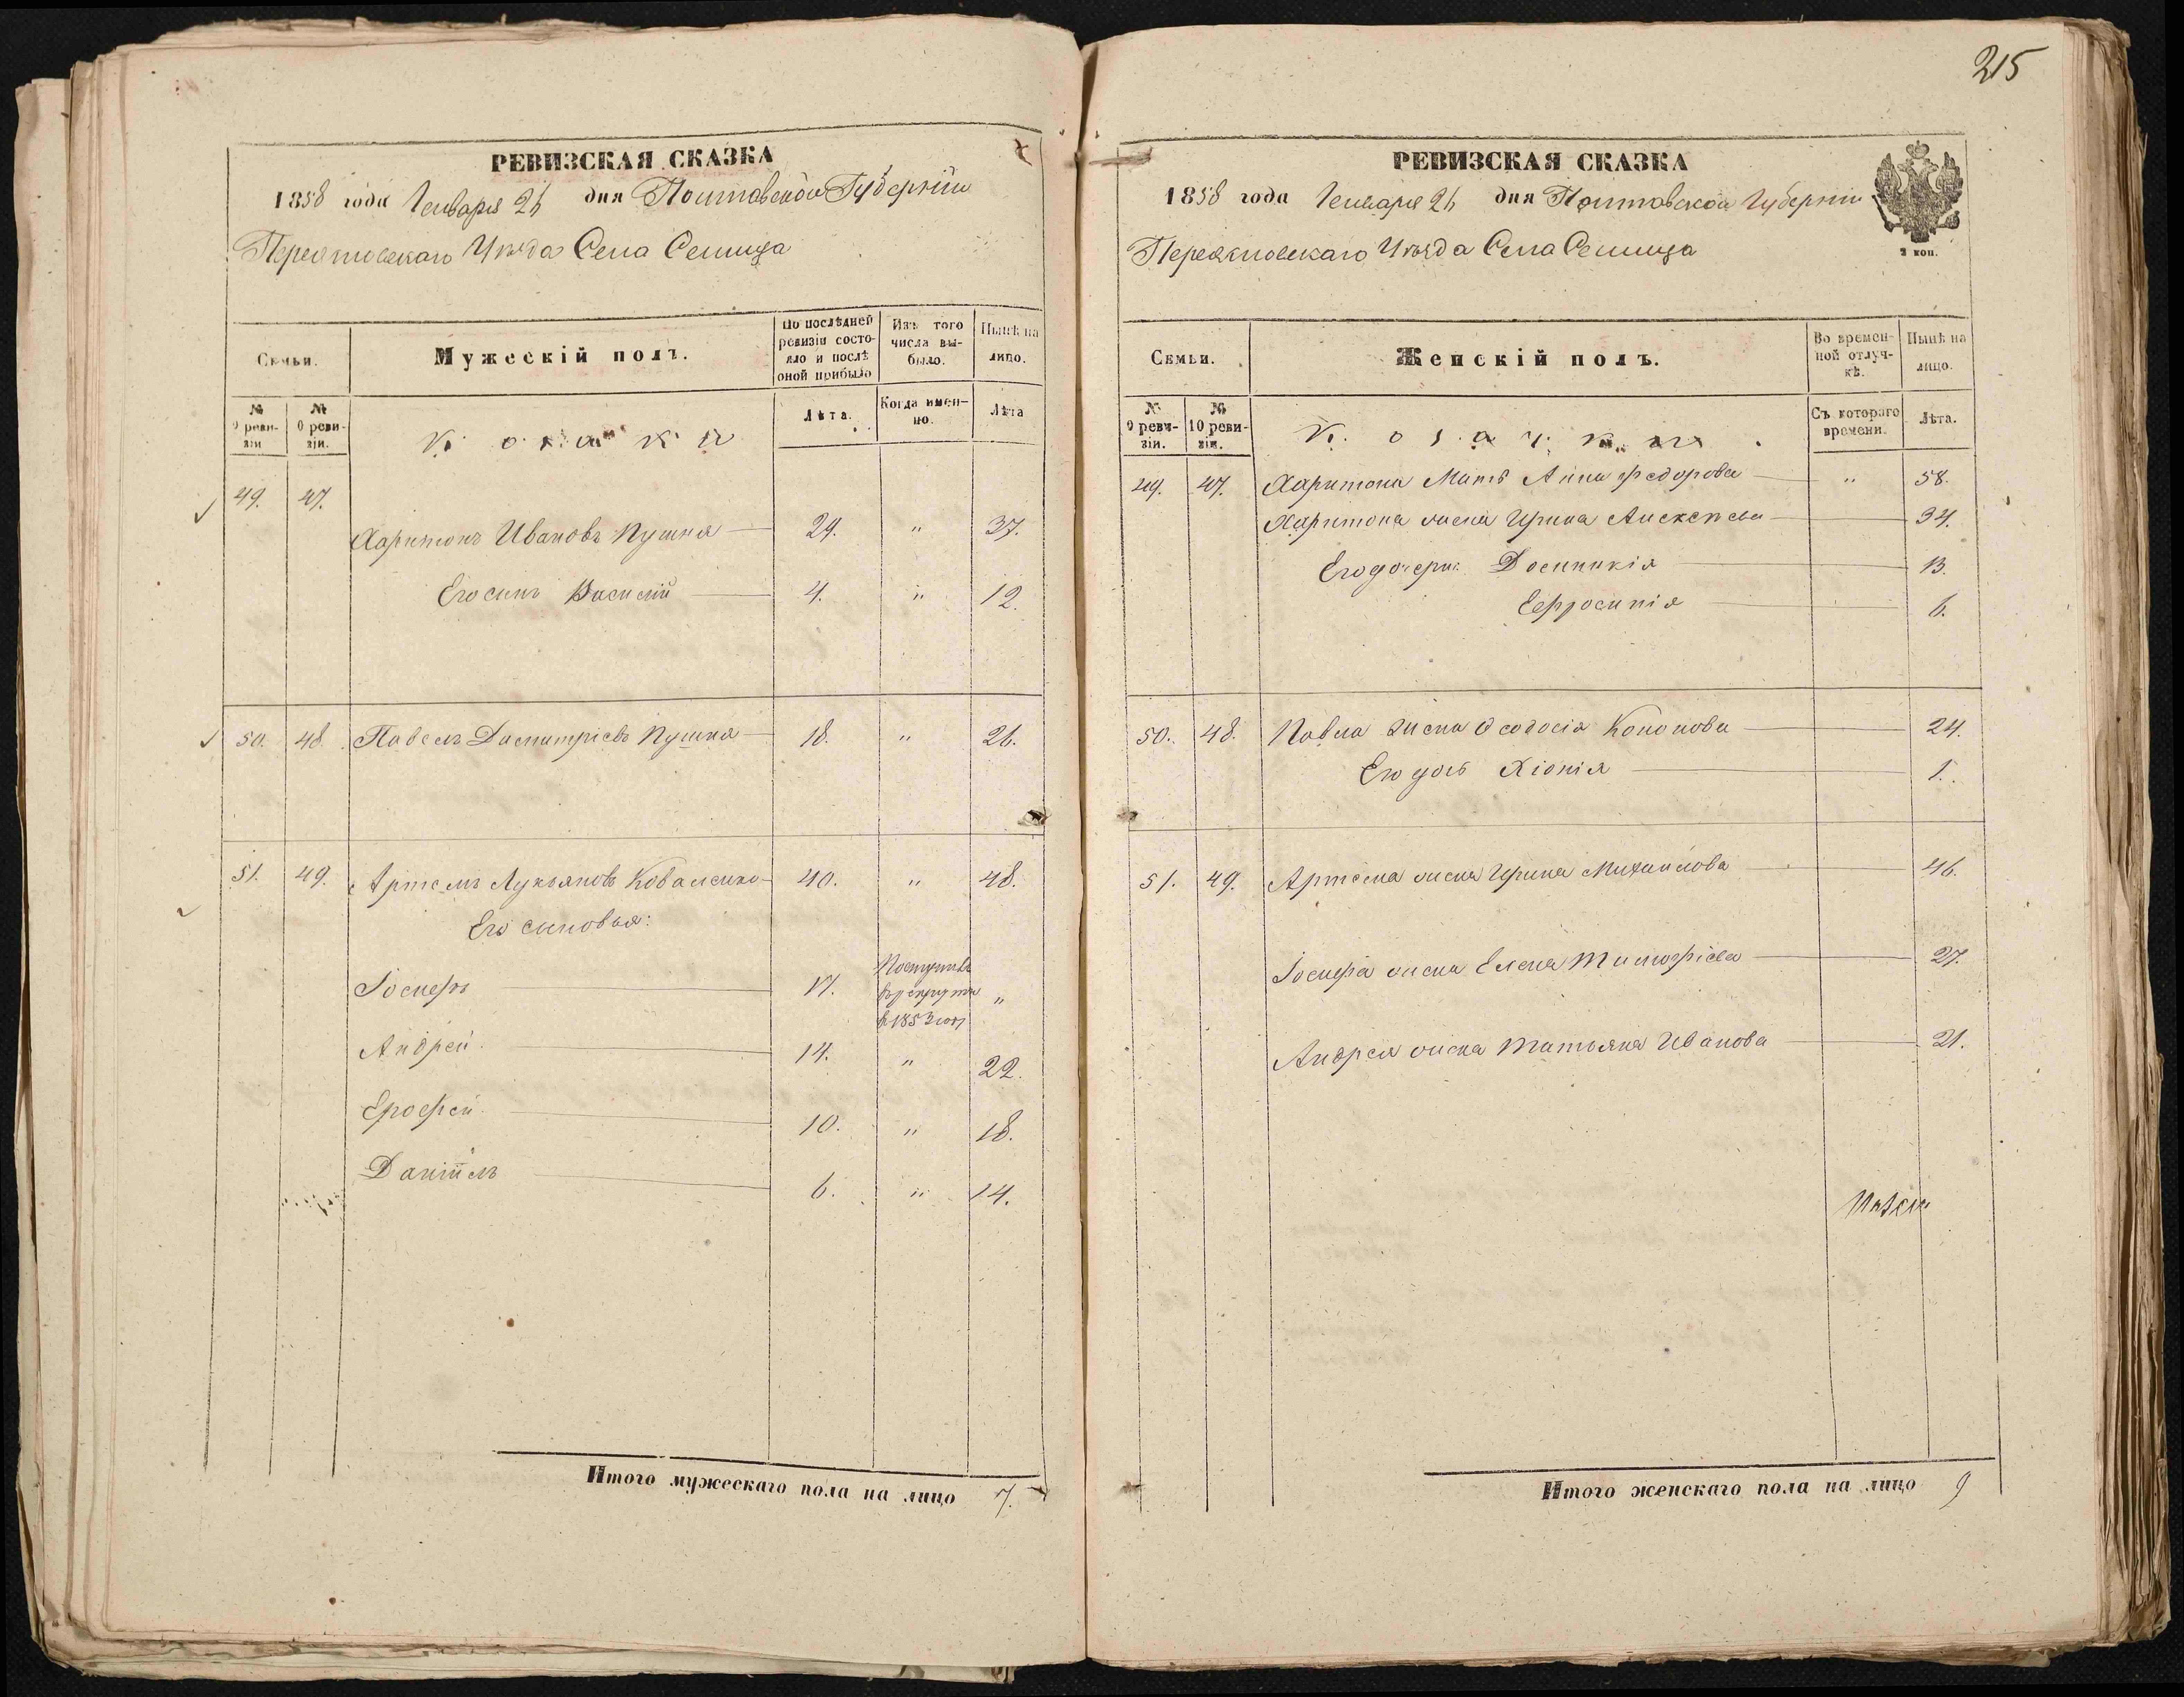 215
РЕВИЗСКАЯ СКАЗКА
1858 года Генваря 26 дня Полтавской Губерніи
Переяславскаго Уѣзда Села Селища
Семьи.
Мужескій полъ.
По послѣдней ревизіи состояло и послѣ оной прибыло
Изъ того числа выбыло.
Нынѣ на лицо.
№ 9 ревизіи
№ 10 ревизіи.
Козаки
Лѣта.
Когда именно.
Лѣта
49. 47.
Харитонъ Ивановъ Пушка 29. " 37.
Его сынъ Василій 4. " 12.
50. 48. Павелъ Дмитріевъ Пушка 18. " 26.
51. 49. Артемъ Лукьяновъ Коваленко 40. " 48.
Его сыновья:
Іосифъ 17. Поступилъ в рекруты в 1853 году "
Андрей 14. " 22.
Ерофей 10. " 18.
Даніилъ 6. " 14.
Итого мужескаго пола на лицо 7.
РЕВИЗСКАЯ СКАЗКА
1858 года Генваря 26 дня Полтавской Губерніи
Переяславскаго Уѣзда Села Селища
2 коп.
Семьи.
Женскій полъ.
Во временной отлучкѣ.
Нынѣ на лицо.
№ 9 ревизіи.
№ 10 ревизіи.
Козачки
Съ котораго времени.
Лѣта.
49. 47. Харитона Мать Анна Федорова " 58.
Харитона жена Ирина Алексѣева 34.
Его дочери: Домникія 13.
Евфросинія 6.
50. 48. Павла жена Ѳеодосія Кононова 24.
Его дочь Хіонія 1.
51. 49. Артема жена Ирина Михайлова 46.
Іосифа жена Елена Тимофіева 27.
Андрея жена Татьяна Иванова 21.
Итого женскаго пола на лицо 9